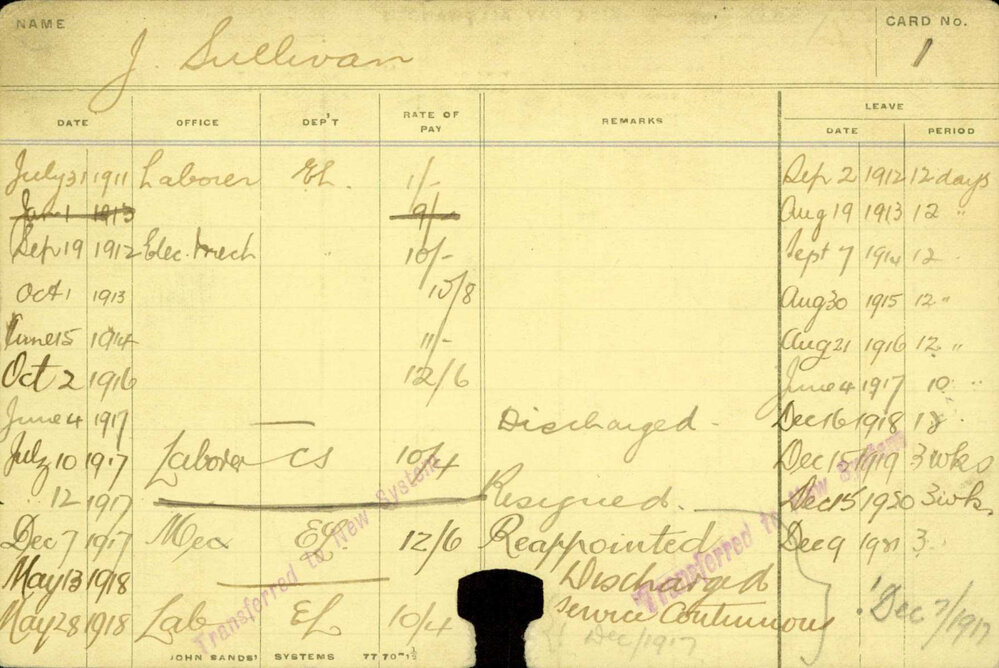 NAME
J. Sullivan
CARD No.
1
DATE OFFICE DEP'T RATE OF PAY REMARKS LEAVE
DATE PERIOD
July 31 1911 Laborer EL. 1/- Sep 2 1912 12 days
Jan 1 1913 9/- Aug 19 1913 12 "
Sep 19 1912 Elec. Mech 10/- Sept 7 1914 12
Oct 1 1913 10/8 Aug 30 1915 12 "
June 15 1914 11/- Aug 21 1916 12 "
Oct 2 1916 12/6 June 4 1917 10 "
June 4 1917 — Discharged - Dec 16 1918 18
July 10 1917 Laborer CS 10/4 Dec 15 1919 3 wks
" 12 1917 Resigned. Dec 15 1920 3 wks.
Dec 7 1917 Mec EL 12/6 Reappointed Dec 9 1921 3
May 13 1918 — Discharged
May 28 1918 Lab EL 10/4 Service Continuous Dec 7/1917
Dec/1917
Transferred to New System
Transferred to New System
JOHN SANDS' SYSTEMS 7770-1½